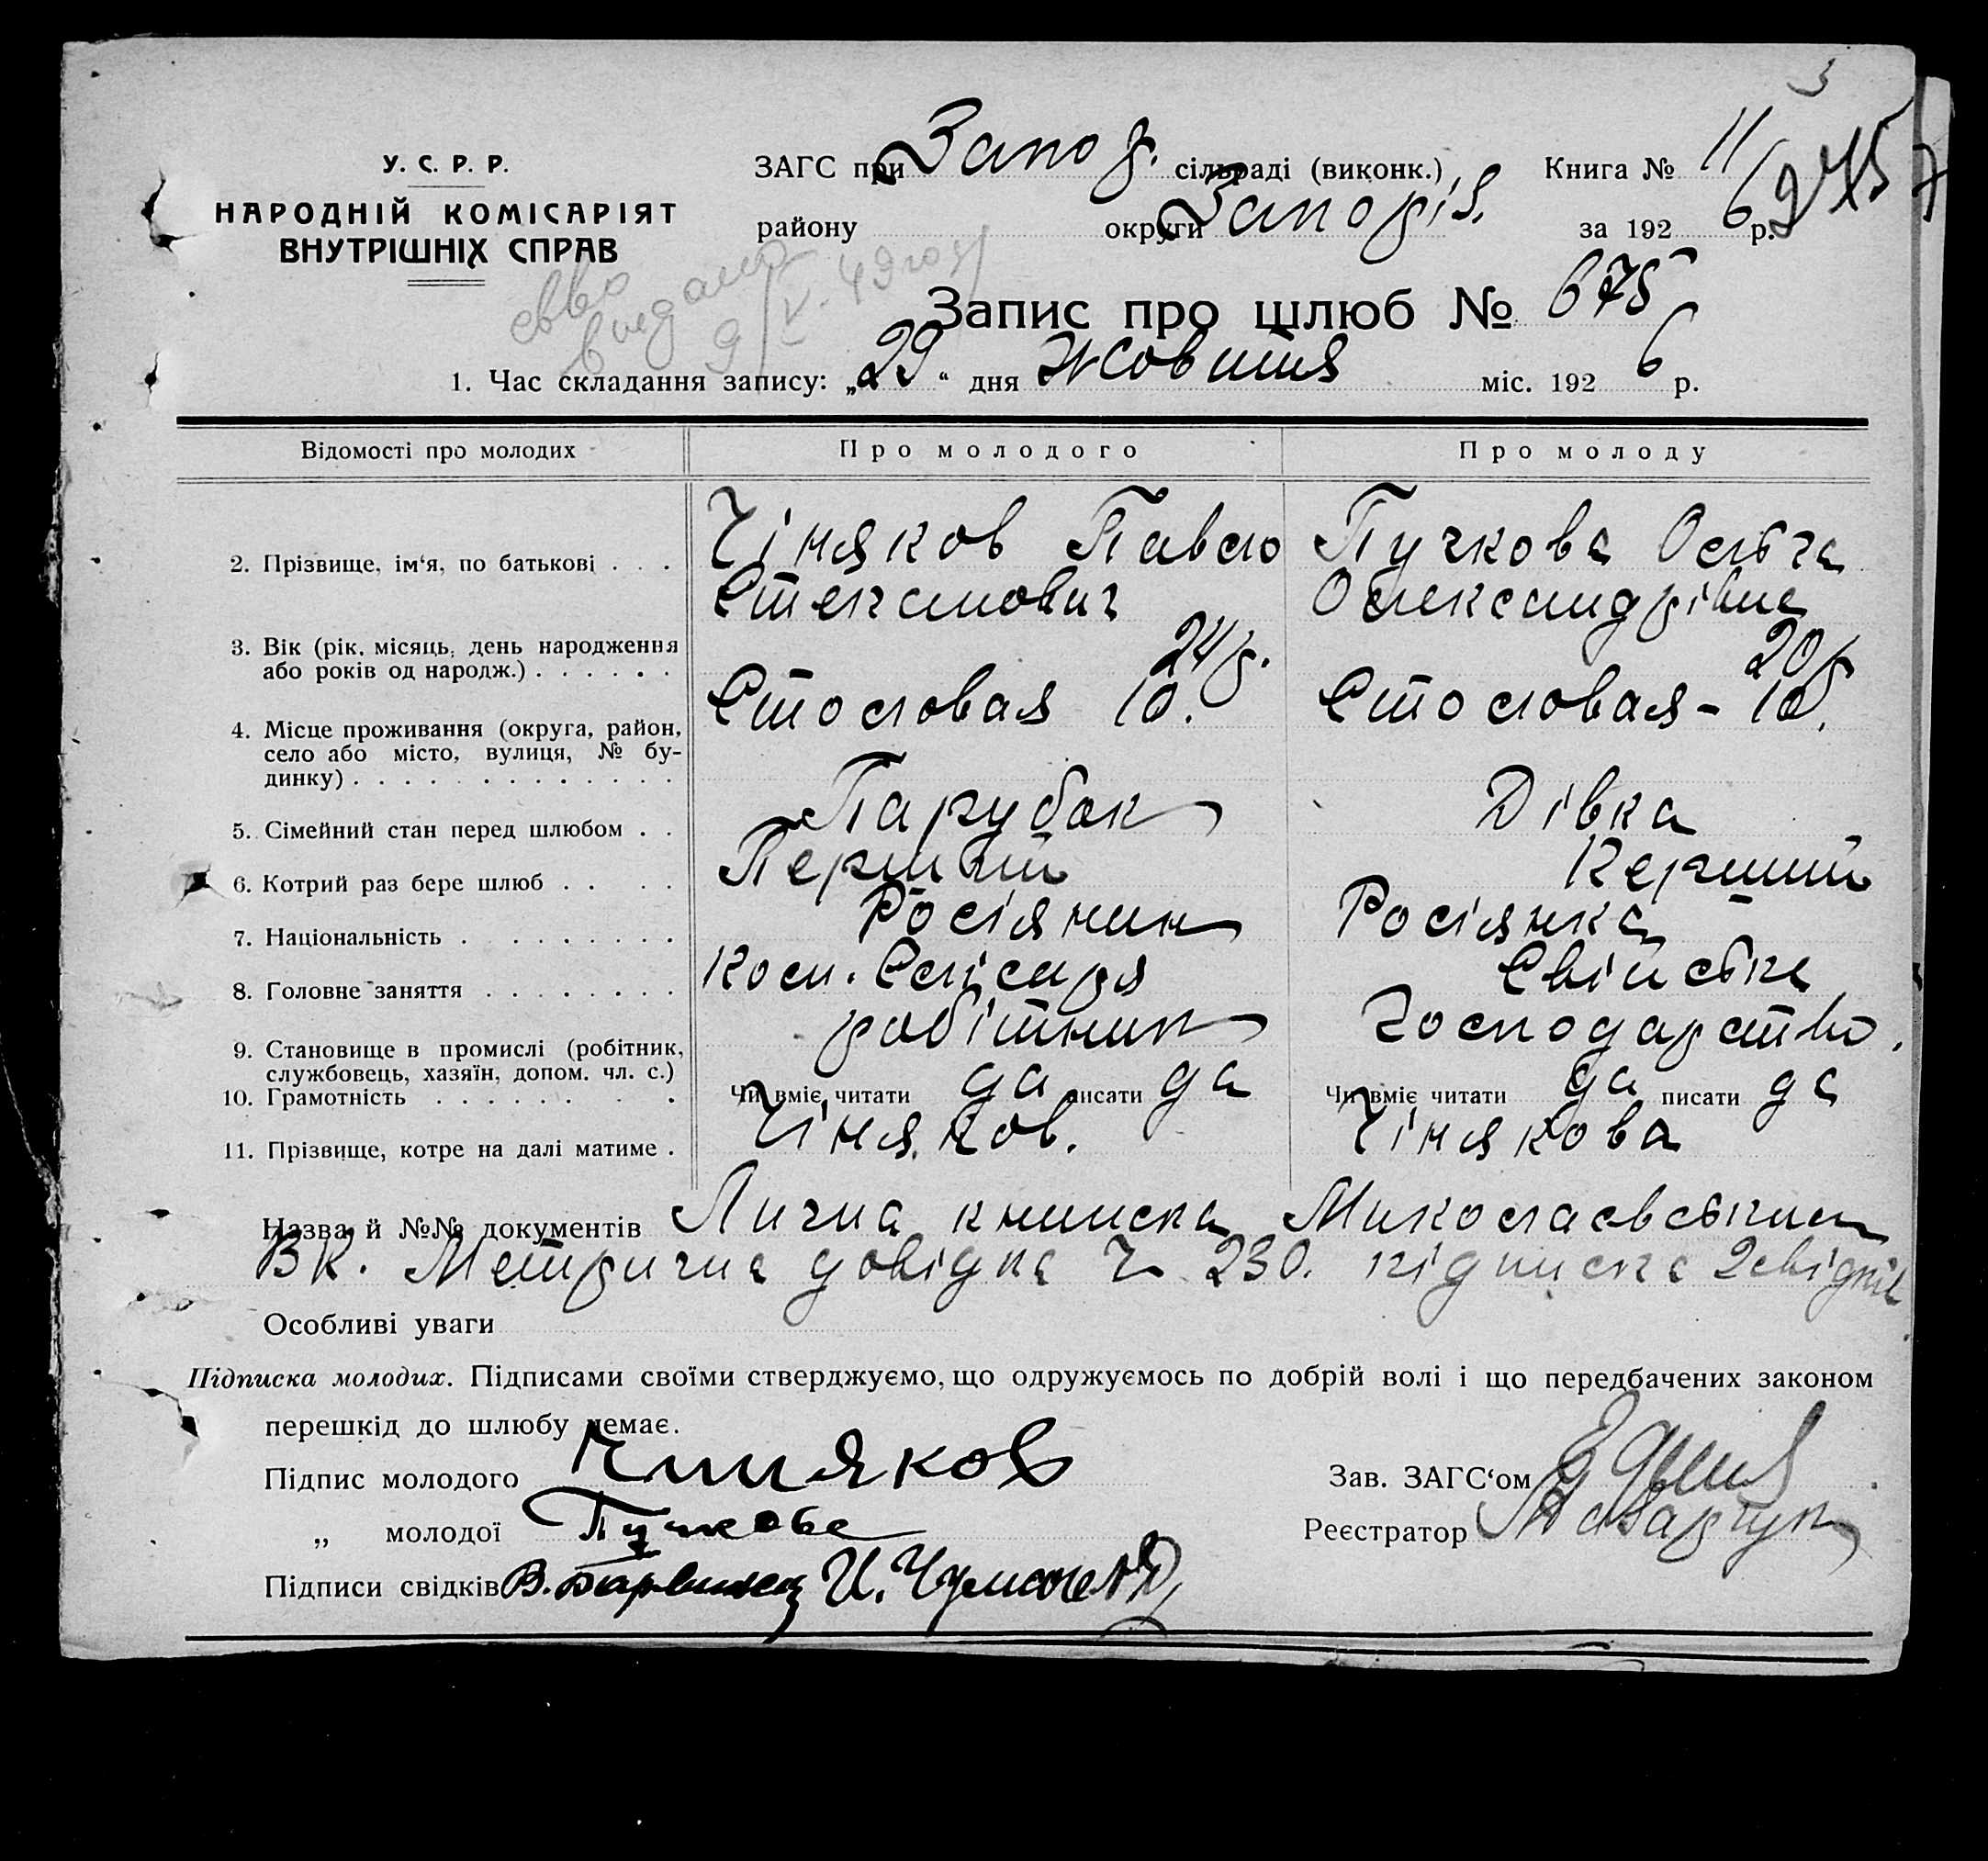 3
У. С. Р. Р.
НАРОДНІЙ КОМІСАРІЯТ
ВНУТРІШНІХ СПРАВ
ЗАГС при Запор. сільраді (виконк.) Книга № 11
району округи Запоріз. за 1926 р.
выдано
9/V-49 год
Запис про шлюб № 675
1. Час складання запису: „29“ дня Жовтня міс. 1926 р.
Відомості про молодих Про молодого Про молоду
2. Прізвище, ім‘я, по батькові . . . Чіняков Павло Пучкова Ольга
Степанович Олександрівна
3. Вік (рік, місяць, день народження 24 р. 20 р
або років од народж.) . . . . . .
4. Місце проживання (округа, район, Столовая 10. Столовая - 10.
село або місто, вулиця, № бу-
динку) . . . . . . . . . . . . .
5. Сімейний стан перед шлюбом . . Парубок Дівка
6. Котрий раз бере шлюб . . . . Перший Перший
7. Національність . . . . . . . . Росіянин Росіянка
8. Головне заняття . . . . . . . . Слісаря Свійське
9. Становище в промислі (робітник, робітник Господарство.
службовець, хазяїн, допом. чл. с.)
10. Грамотність . . . . . . . . Чи вміє читати да писати да Чи вміє читати да писати да
11. Прізвище, котре на далі матиме . Чіняков. Чінякова
Назва й №№ документів Лична книжка Миколаевським
ВК. Метрична довідка Ч 230. підписка 2 свідків
Особливі уваги
Підписка молодих. Підписами своїми стверджуємо, що одружуємось по добрій волі і що передбачених законом
перешкід до шлюбу немає.
Підпис молодого Чиняков Зав. ЗАГС‘ом
„ молодої Пучкова Реєстратор
Підписи свідків В. И.